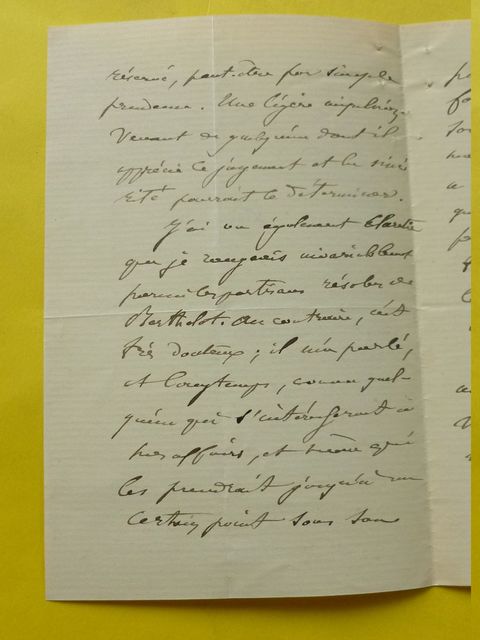 réservé, peut-être par simple
prudence. Une légère impulsion
venant de quelqu'un dont il
apprécie le jugement et la sincé
rité pourrait le déterminer.
J'ai vu également Claretie
que je rangeais invariablement
parmi les partisans résolus de
Berthelot. Au contraire, c'est
très douteux ; il m'a parlé,
et longtemps, comme quel-
qu'un qui s'intéresserait à
mes affaires, et même qui
les prendrait jusqu'à un
certain point sous son